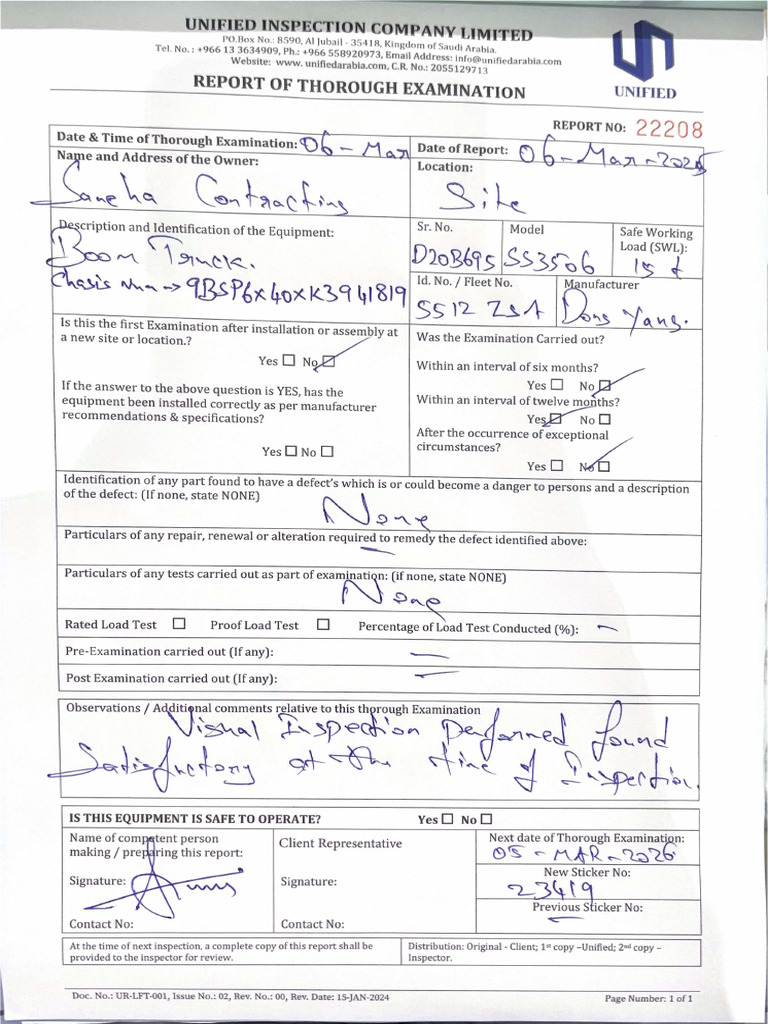 UNIFIED INSPECTION COMPANY LIMITED
PO.Box No.: 8590, Al Jubail - 35418, Kingdom of Saudi Arabia.
Tel. No. : +966 13 3634909, Ph.: +966 558920973, Email Address: info@unifiedarabia.com
Website: www. unifiedarabia.com, C.R. No.: 2055129713
UNIFIED
REPORT OF THOROUGH EXAMINATION
REPORT NO: 22208
Date & Time of Thorough Examination: 06 - Mar
Date of Report: 06 - Mar - 2025
Name and Address of the Owner:
Saneha Contracting
Location:
Site
Description and Identification of the Equipment:
Boom Truck.
Chasis Num → 9BSP6X40XK3941819
Sr. No.
D20B695
Model
SS3506
Safe Working
Load (SWL):
15 t
Id. No. / Fleet No.
5512 ZSA
Manufacturer
Dong Yang.
Is this the first Examination after installation or assembly at
a new site or location.?
Yes ☐ No ☑
If the answer to the above question is YES, has the
equipment been installed correctly as per manufacturer
recommendations & specifications?
Yes ☐ No ☐
Was the Examination Carried out?
Within an interval of six months?
Yes ☐ No ☑
Within an interval of twelve months?
Yes ☑ No ☐
After the occurrence of exceptional
circumstances?
Yes ☐ No ☑
Identification of any part found to have a defect's which is or could become a danger to persons and a description
of the defect: (If none, state NONE)
None
Particulars of any repair, renewal or alteration required to remedy the defect identified above:
—
Particulars of any tests carried out as part of examination: (if none, state NONE)
None
Rated Load Test ☐ Proof Load Test ☐ Percentage of Load Test Conducted (%): —
Pre-Examination carried out (If any): —
Post Examination carried out (If any): —
Observations / Additional comments relative to this thorough Examination
Visual Inspection performed found
Satisfactory at the time of Inspection.
IS THIS EQUIPMENT IS SAFE TO OPERATE? Yes ☐ No ☐
Name of competent person
making / preparing this report:
Signature:
Contact No:
Client Representative
Signature:
Contact No:
Next date of Thorough Examination:
05 - MAR - 2026
New Sticker No:
23419
Previous Sticker No:
—
At the time of next inspection, a complete copy of this report shall be
provided to the inspector for review.
Distribution: Original - Client; 1st copy –Unified; 2nd copy –
Inspector.
Doc. No.: UR-LFT-001, Issue No.: 02, Rev. No.: 00, Rev. Date: 15-JAN-2024
Page Number: 1 of 1